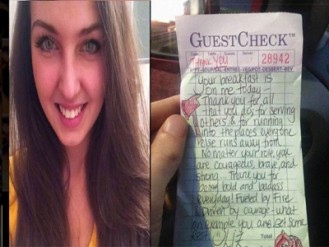 GUESTCHECK™
Date Table Guests Server
THANK YOU 28942
your breakfast is
on me today -
Thank you for all
that you do; for serving
others & for running
into the places everyone
else runs away from.
No matter your role, you
are courageous, brave, and
strong. Thank you for
being bold and badass
everyday! Fueled by Fire
& Driven by courage - what
an example you are. Get some
rest
Liz